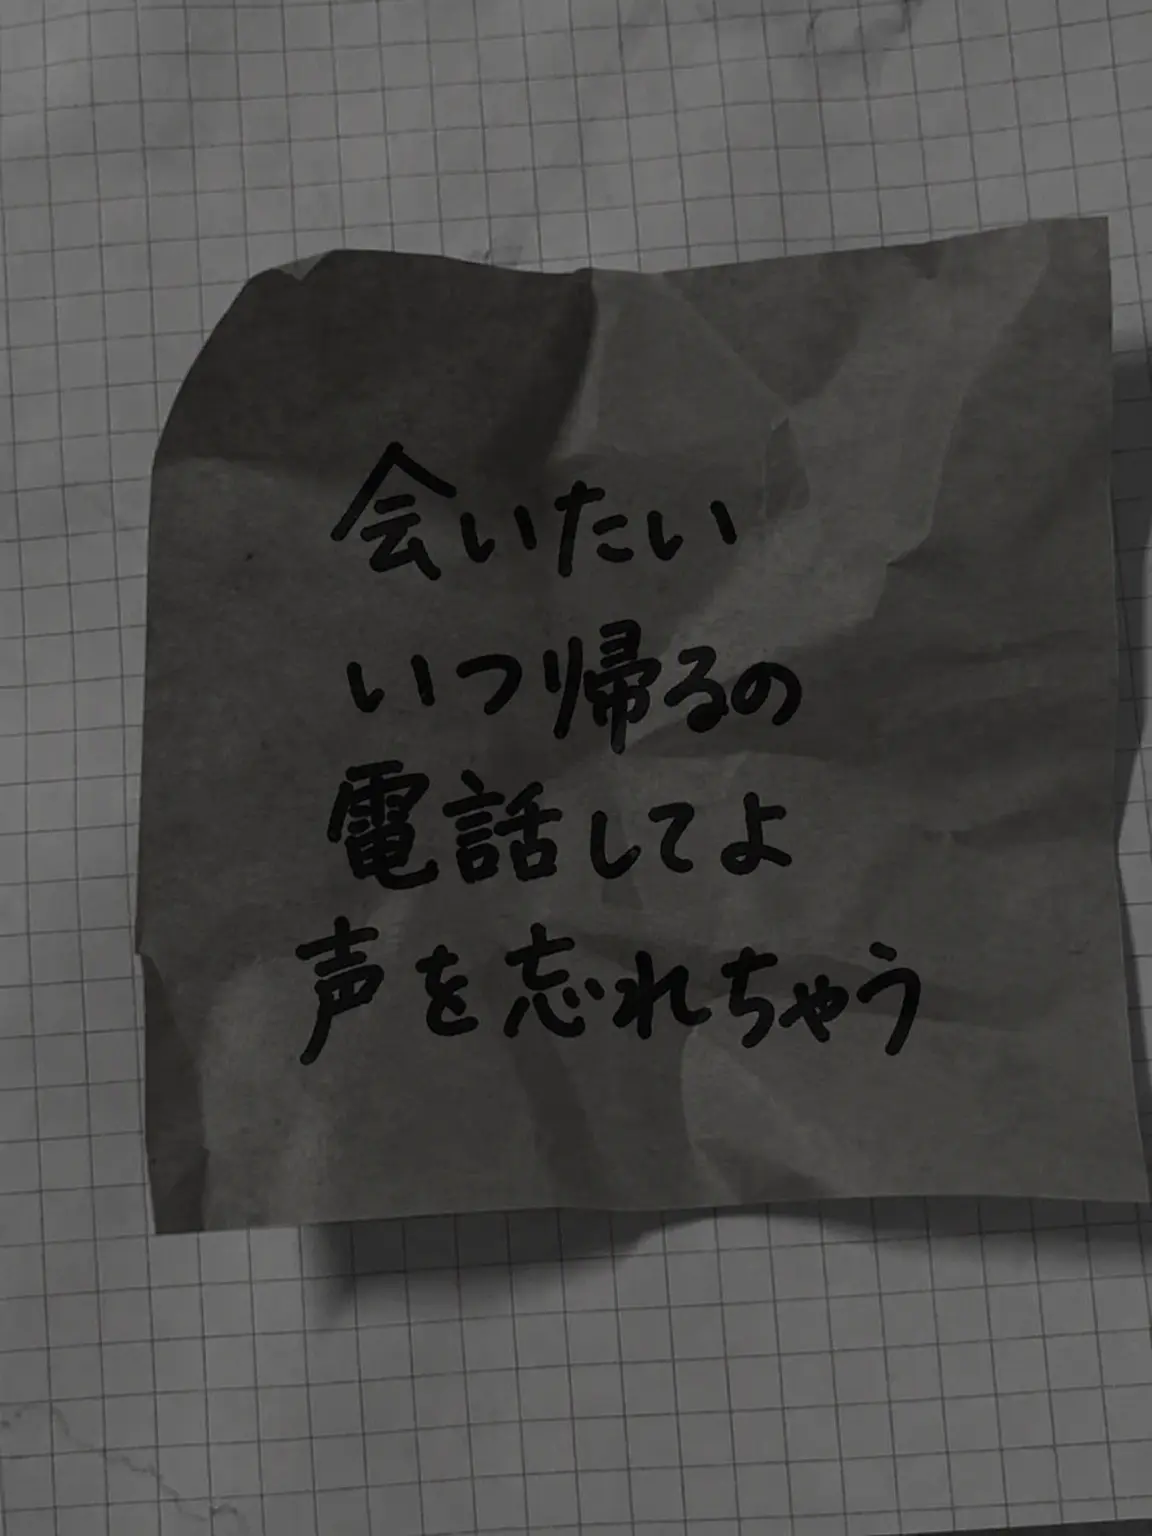 会いたい
いつ帰るの
電話してよ
声を忘れちゃう